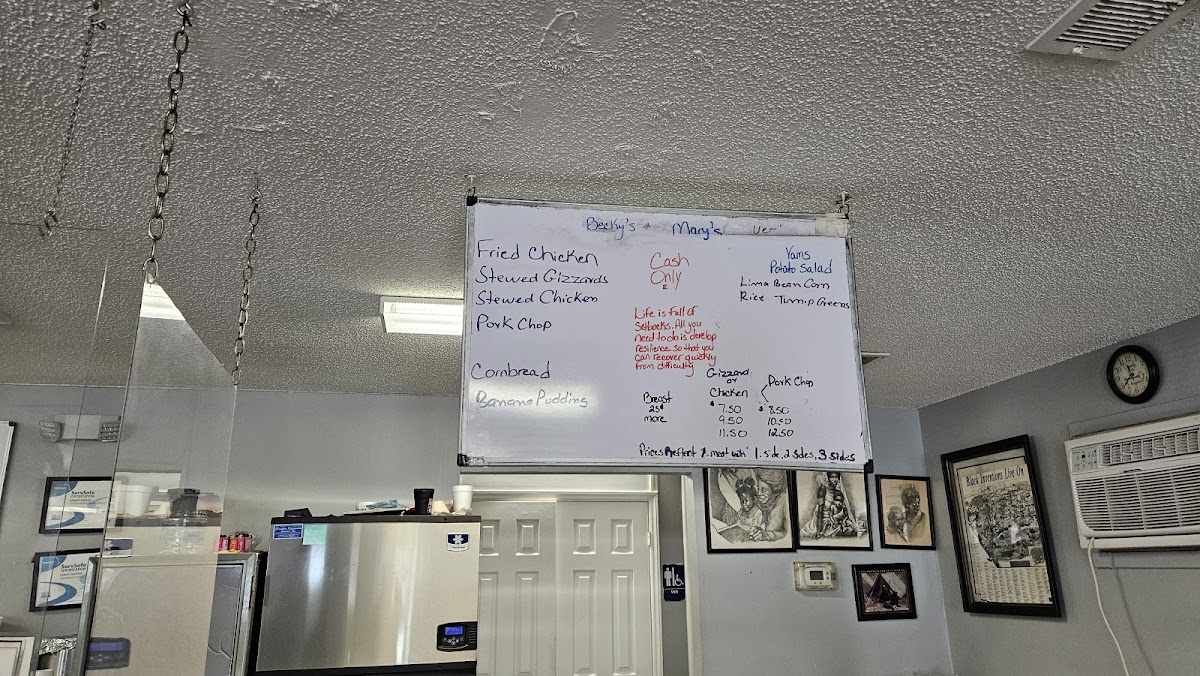 Becky's + Mary's
Fried Chicken
Stewed Gizzards
Stewed Chicken
Pork Chop
Cornbread
Banana Pudding
Cash
Only
Life is full of
Setbacks. All you
need to do is develop
resilience so that you
can recover quickly
from difficulty
Yams
Potato Salad
Lima Bean Corn
Rice Turnip Greens
Gizzard
or
Chicken
Pork Chop
Breast
25¢
more
$ 7.50 $ 8.50
9.50 10.50
11.50 12.50
Prices Reflect 1 meat with 1 side, 2 sides, 3 sides
ServSafe
CERTIFICATION
ServSafe
CERTIFICATION
Black Inventions Live On